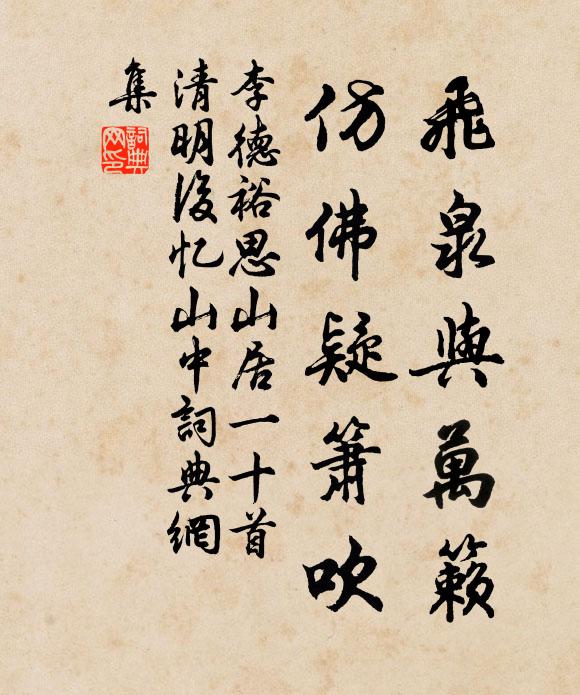 飛泉與萬籟
仿佛疑簫吹
李德裕思山居一十首
清明後忆山中詞典網
集
詞典
网印